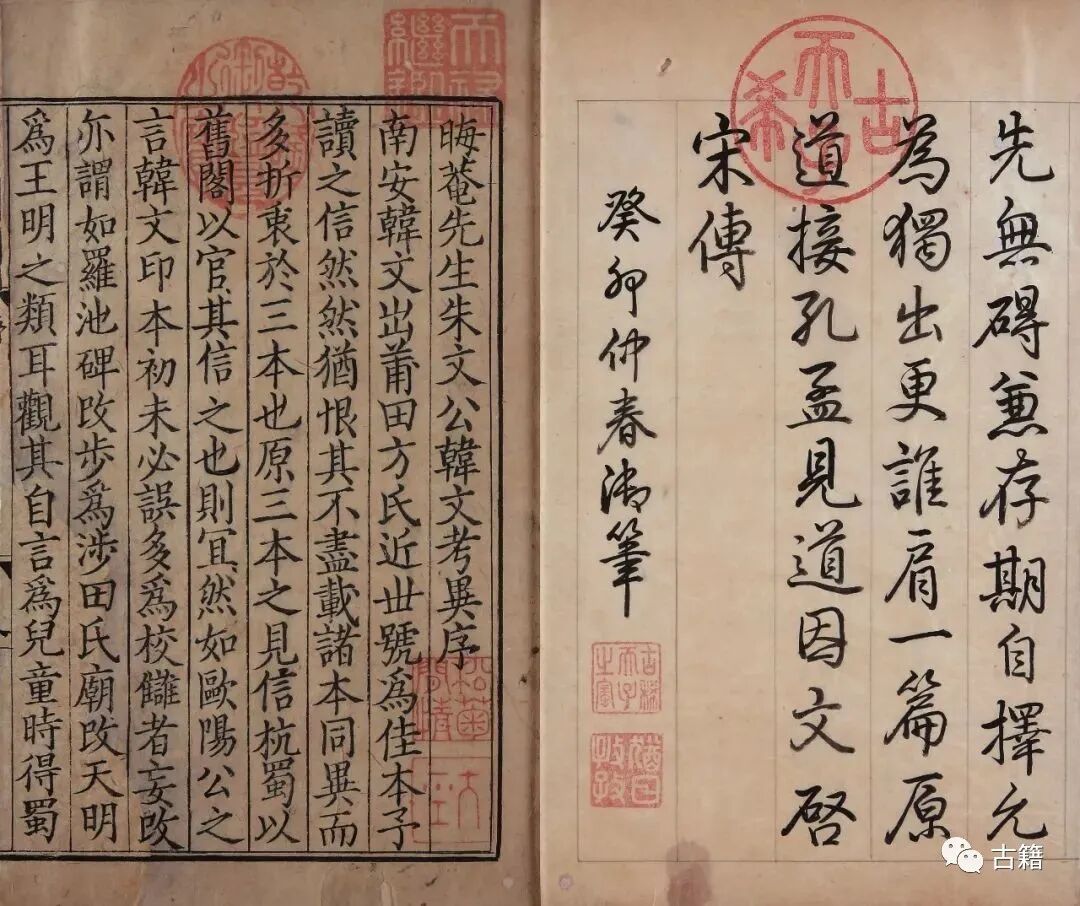 先無碍兼存期自擇允
為獨出更誰肩一篇原
道接孔孟見道因文啓
宋傳
癸卯仲春御筆
古希天子
古稀天子之寶
猶日孜孜
晦菴先生朱文公韓文考異序
南安韓文出莆田方氏近世號爲佳本予
讀之信然然猶恨其不盡載諸本同異而
多折衷於三本也原三本之見信杭蜀以
舊閣以官其信之也則冝然如歐陽公之
言韓文印本初未必誤多爲校讎者妄改
亦謂如羅池碑改步爲涉田氏廟改天明
爲王明之類耳觀其自言爲兒童時得蜀
天祿繼鑑
乾隆御覽之寶
古籍